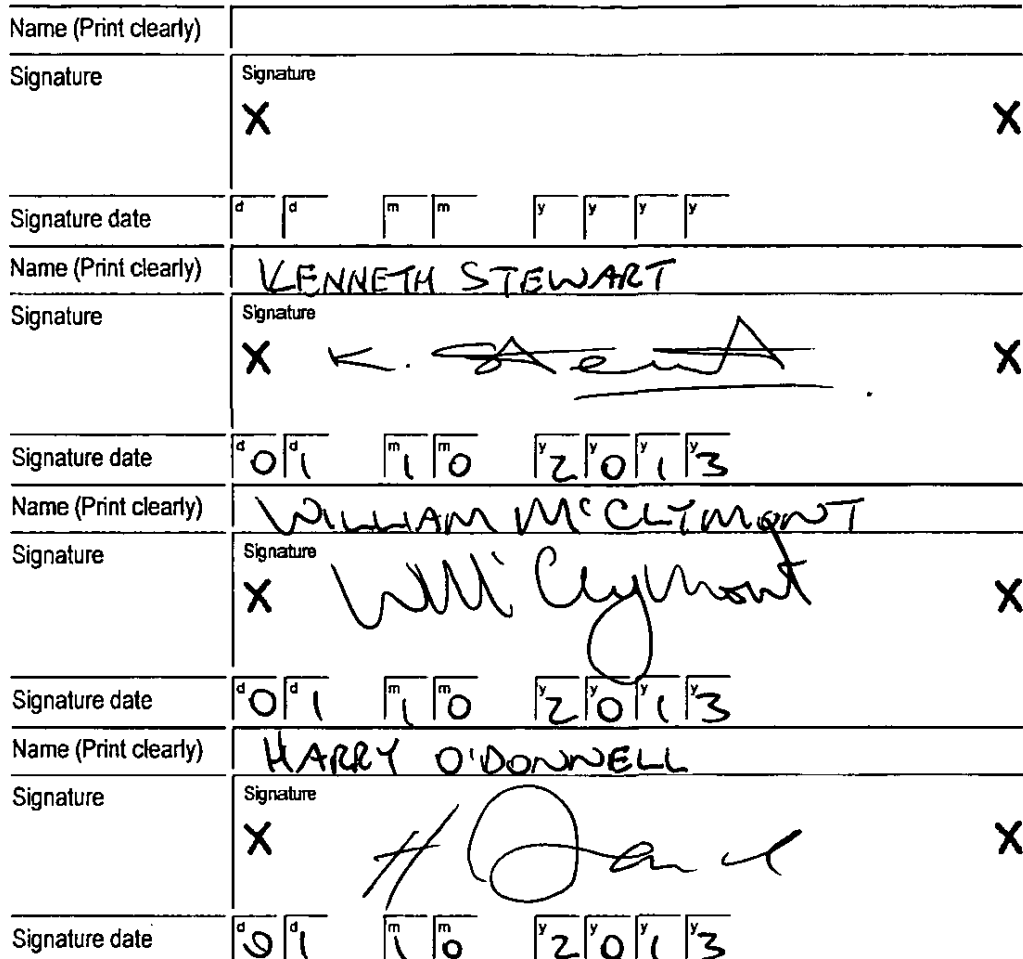 Name (Print clearly)
Signature
Signature
X X
Signature date d d m m y y y y
Name (Print clearly) KENNETH STEWART
Signature
Signature
X K. Stewart X
Signature date d0 d1 m1 m0 y2 y0 y1 y3
Name (Print clearly) WILLIAM McCLYMONT
Signature
Signature
X W McClymont X
Signature date d0 d1 m1 m0 y2 y0 y1 y3
Name (Print clearly) HARRY O'DONNELL
Signature
Signature
X H X
Signature date d0 d1 m1 m0 y2 y0 y1 y3